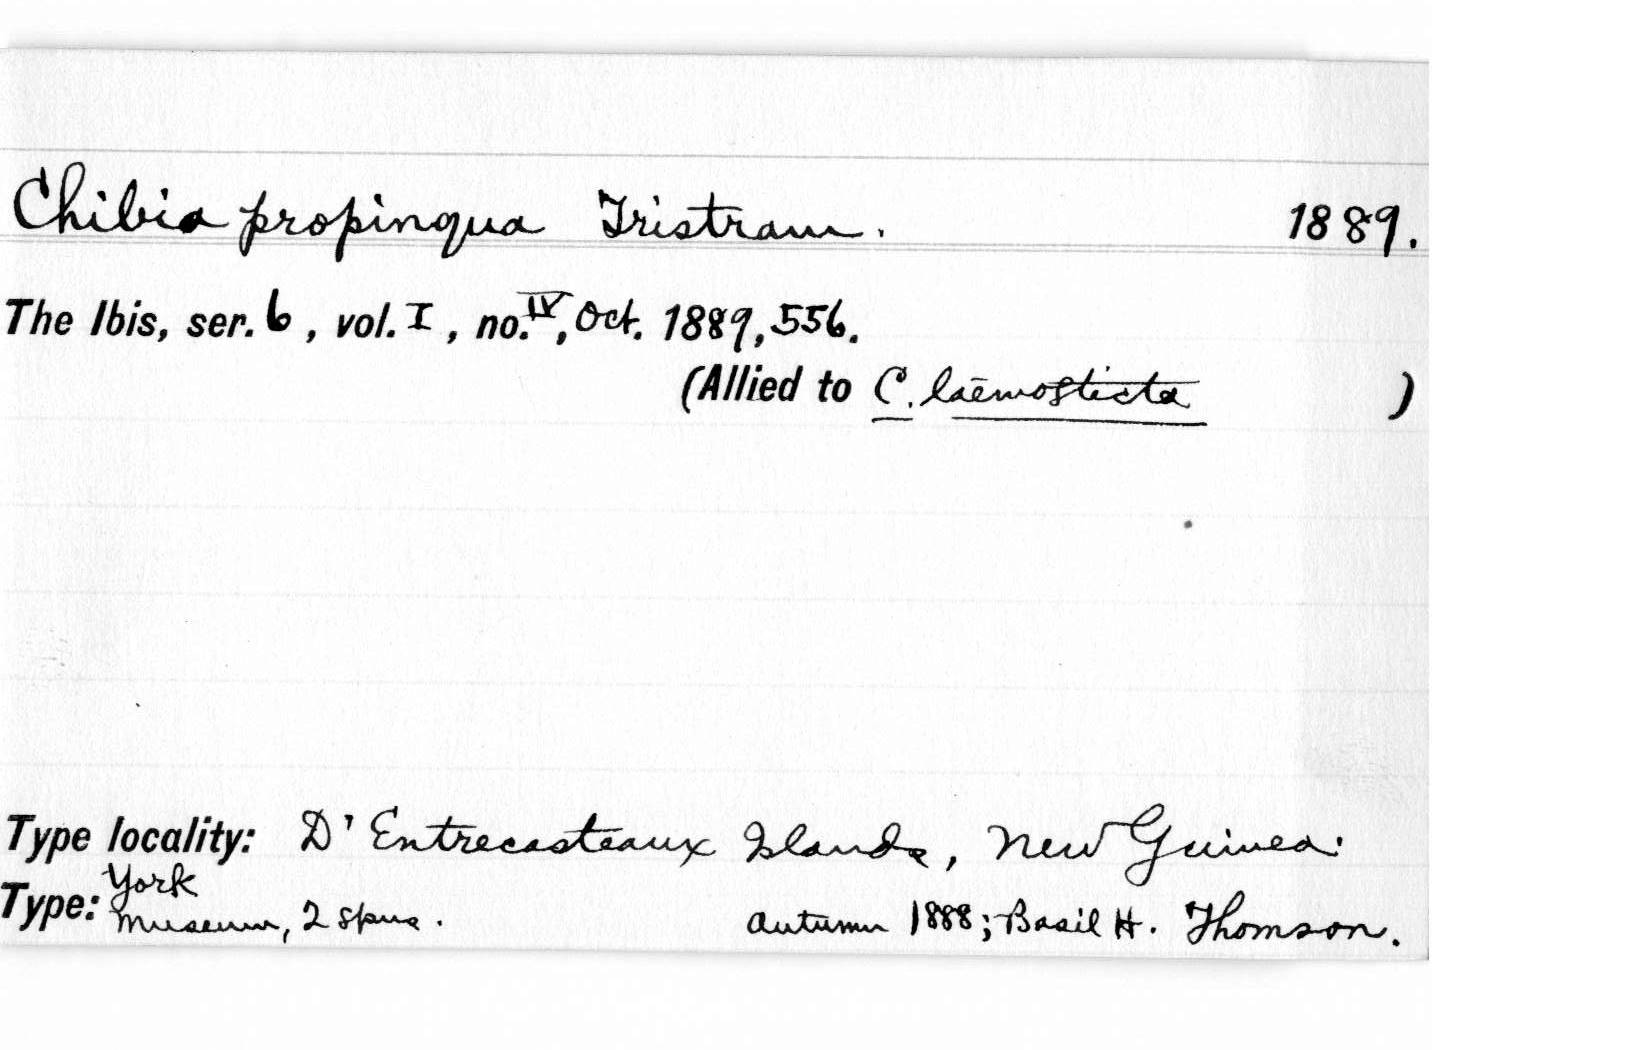 Chibia propinqua Tristram. 1889.
The Ibis, ser. 6, vol. I, no. IV, Oct. 1889, 556.
(Allied to C. laemosticta )
Type locality: D'Entrecasteaux Islands, New Guinea.
Type: York Museum, 2 spms. Autumn 1888; Basil H. Thomson.